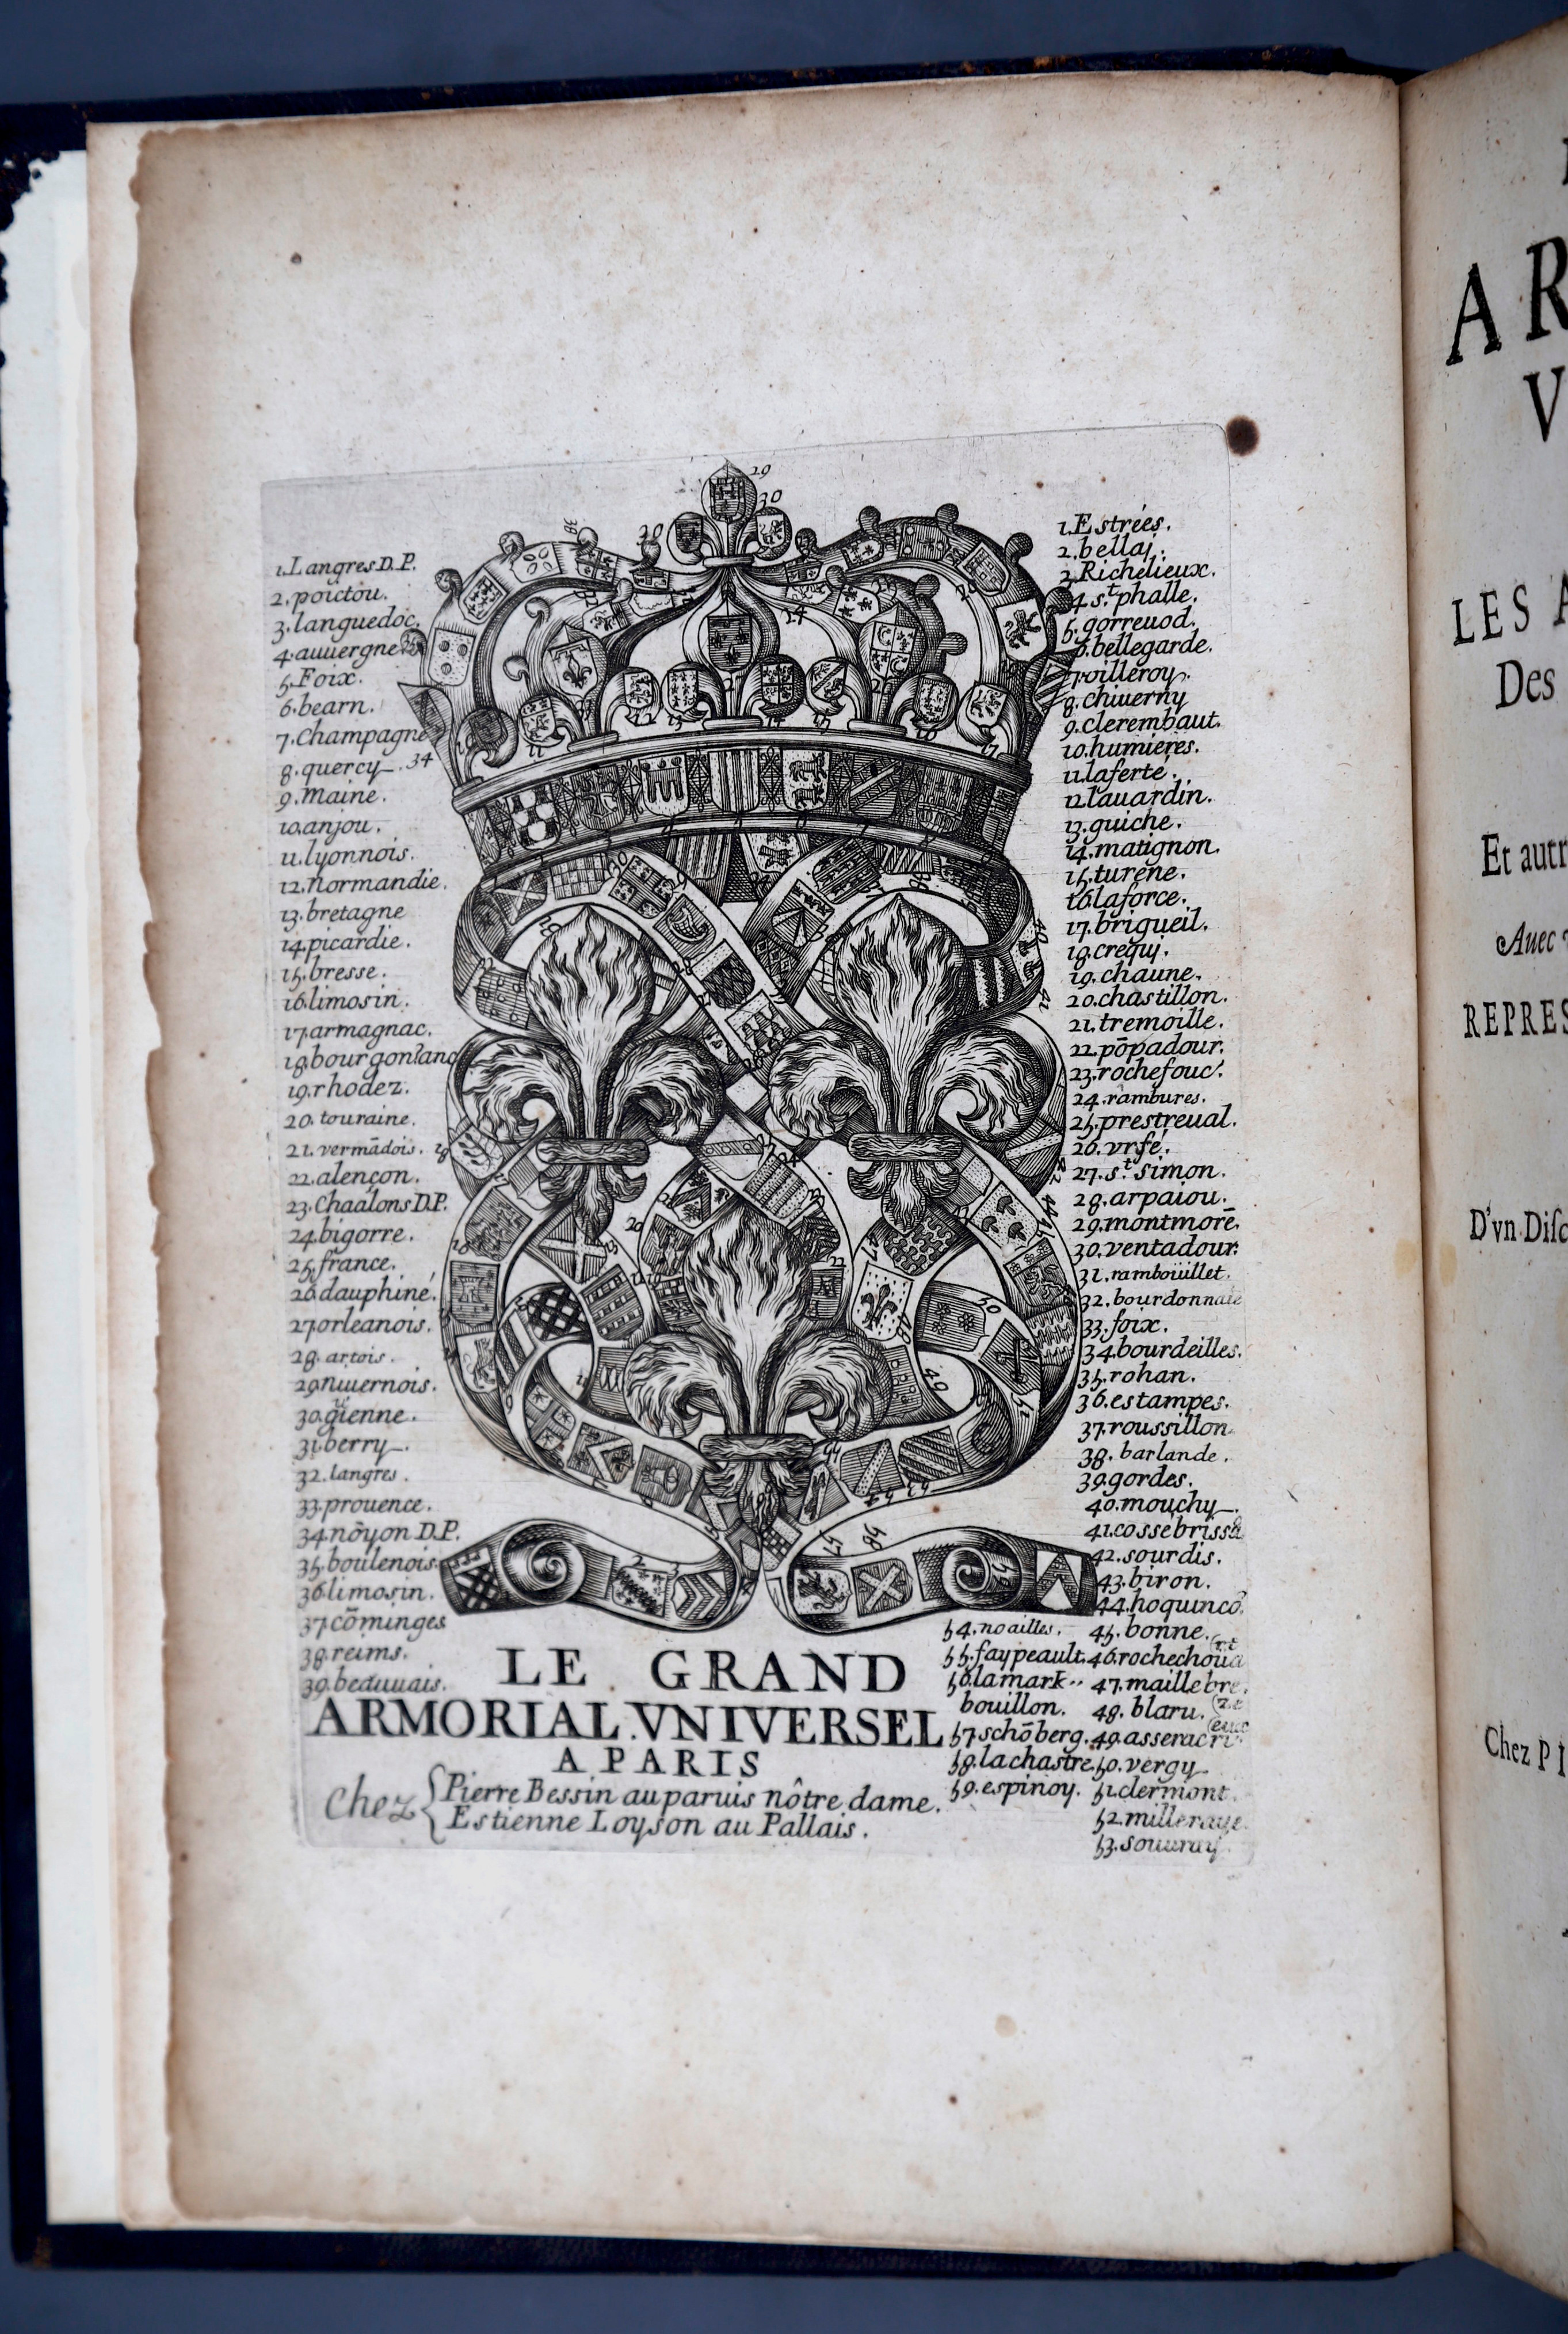 1.Langres D.P.
2.poictou.
3.languedoc.
4.auuergne
5.Foix.
6.bearn.
7.Champagne
8.quercy. 34
9.Maine.
10.anjou.
11.lyonnois.
12.Normandie.
13.bretagne
14.picardie.
15.bresse.
16.limosin.
17.armagnac.
18.
19.rhodez.
20.touraine.
21.vermādois.
22.alençon.
23.Chaalons D.P.
24.bigorre.
25.france.
26.dauphiné.
27.orleanois.
28.artois.
29.Niuernois.
30.
31.berry.
32.langres.
33.prouence.
34.nōyon D.P.
35.boulenois.
36.limosin.
37.cōminges
38.reims.
39.beauuais.
1.Estrées.
2.bellaj.
3.Richelieux.
4.sᵗphalle.
5.gorreuod.
6.bellegarde.
7.villeroy.
8.chiuerny
9.clerembaut.
10.humieres.
11.laferté.
12.lauardin.
13.guiche.
14.matignon.
15.turene.
16.laforce.
17.brigueil.
18.crequj.
19.chaune.
20.chastillon.
21.tremoille.
22.pōpadour.
23.rochefouc.
24.rambures.
25.prestreual.
26.vrfé.
27.sᵗ simon.
28.arpaiou.
29.montmorē.
30.ventadour.
31.ramboüillet.
32.bourdonnaie
33.foix.
34.bourdeilles.
35.rohan.
36.estampes.
37.roussillon
38.barlande.
39.gordes.
40.mouchy.
41.cossebrissa
42.sourdis.
43.biron.
44.hoquincō
45.bonne.
46.rochechoüa
47.maillebre.
48.blaru.
49.asserac
50.vergy
51.clermont.
52.milleraye.
53.souuray
54.noailles.
55.faypeault.
56.lamark..
bouillon.
57.schōberg.
58.lachastre.
59.espinoy.
LE GRAND
ARMORIAL.VNIVERSEL
A PARIS
Chez
Pierre Bessin au paruis nôtre dame.
Estienne Loyson au Pallais.
AR
V
LES A
Des
Et autr
Auec
REPRES
D'vn Disc
Chez PI